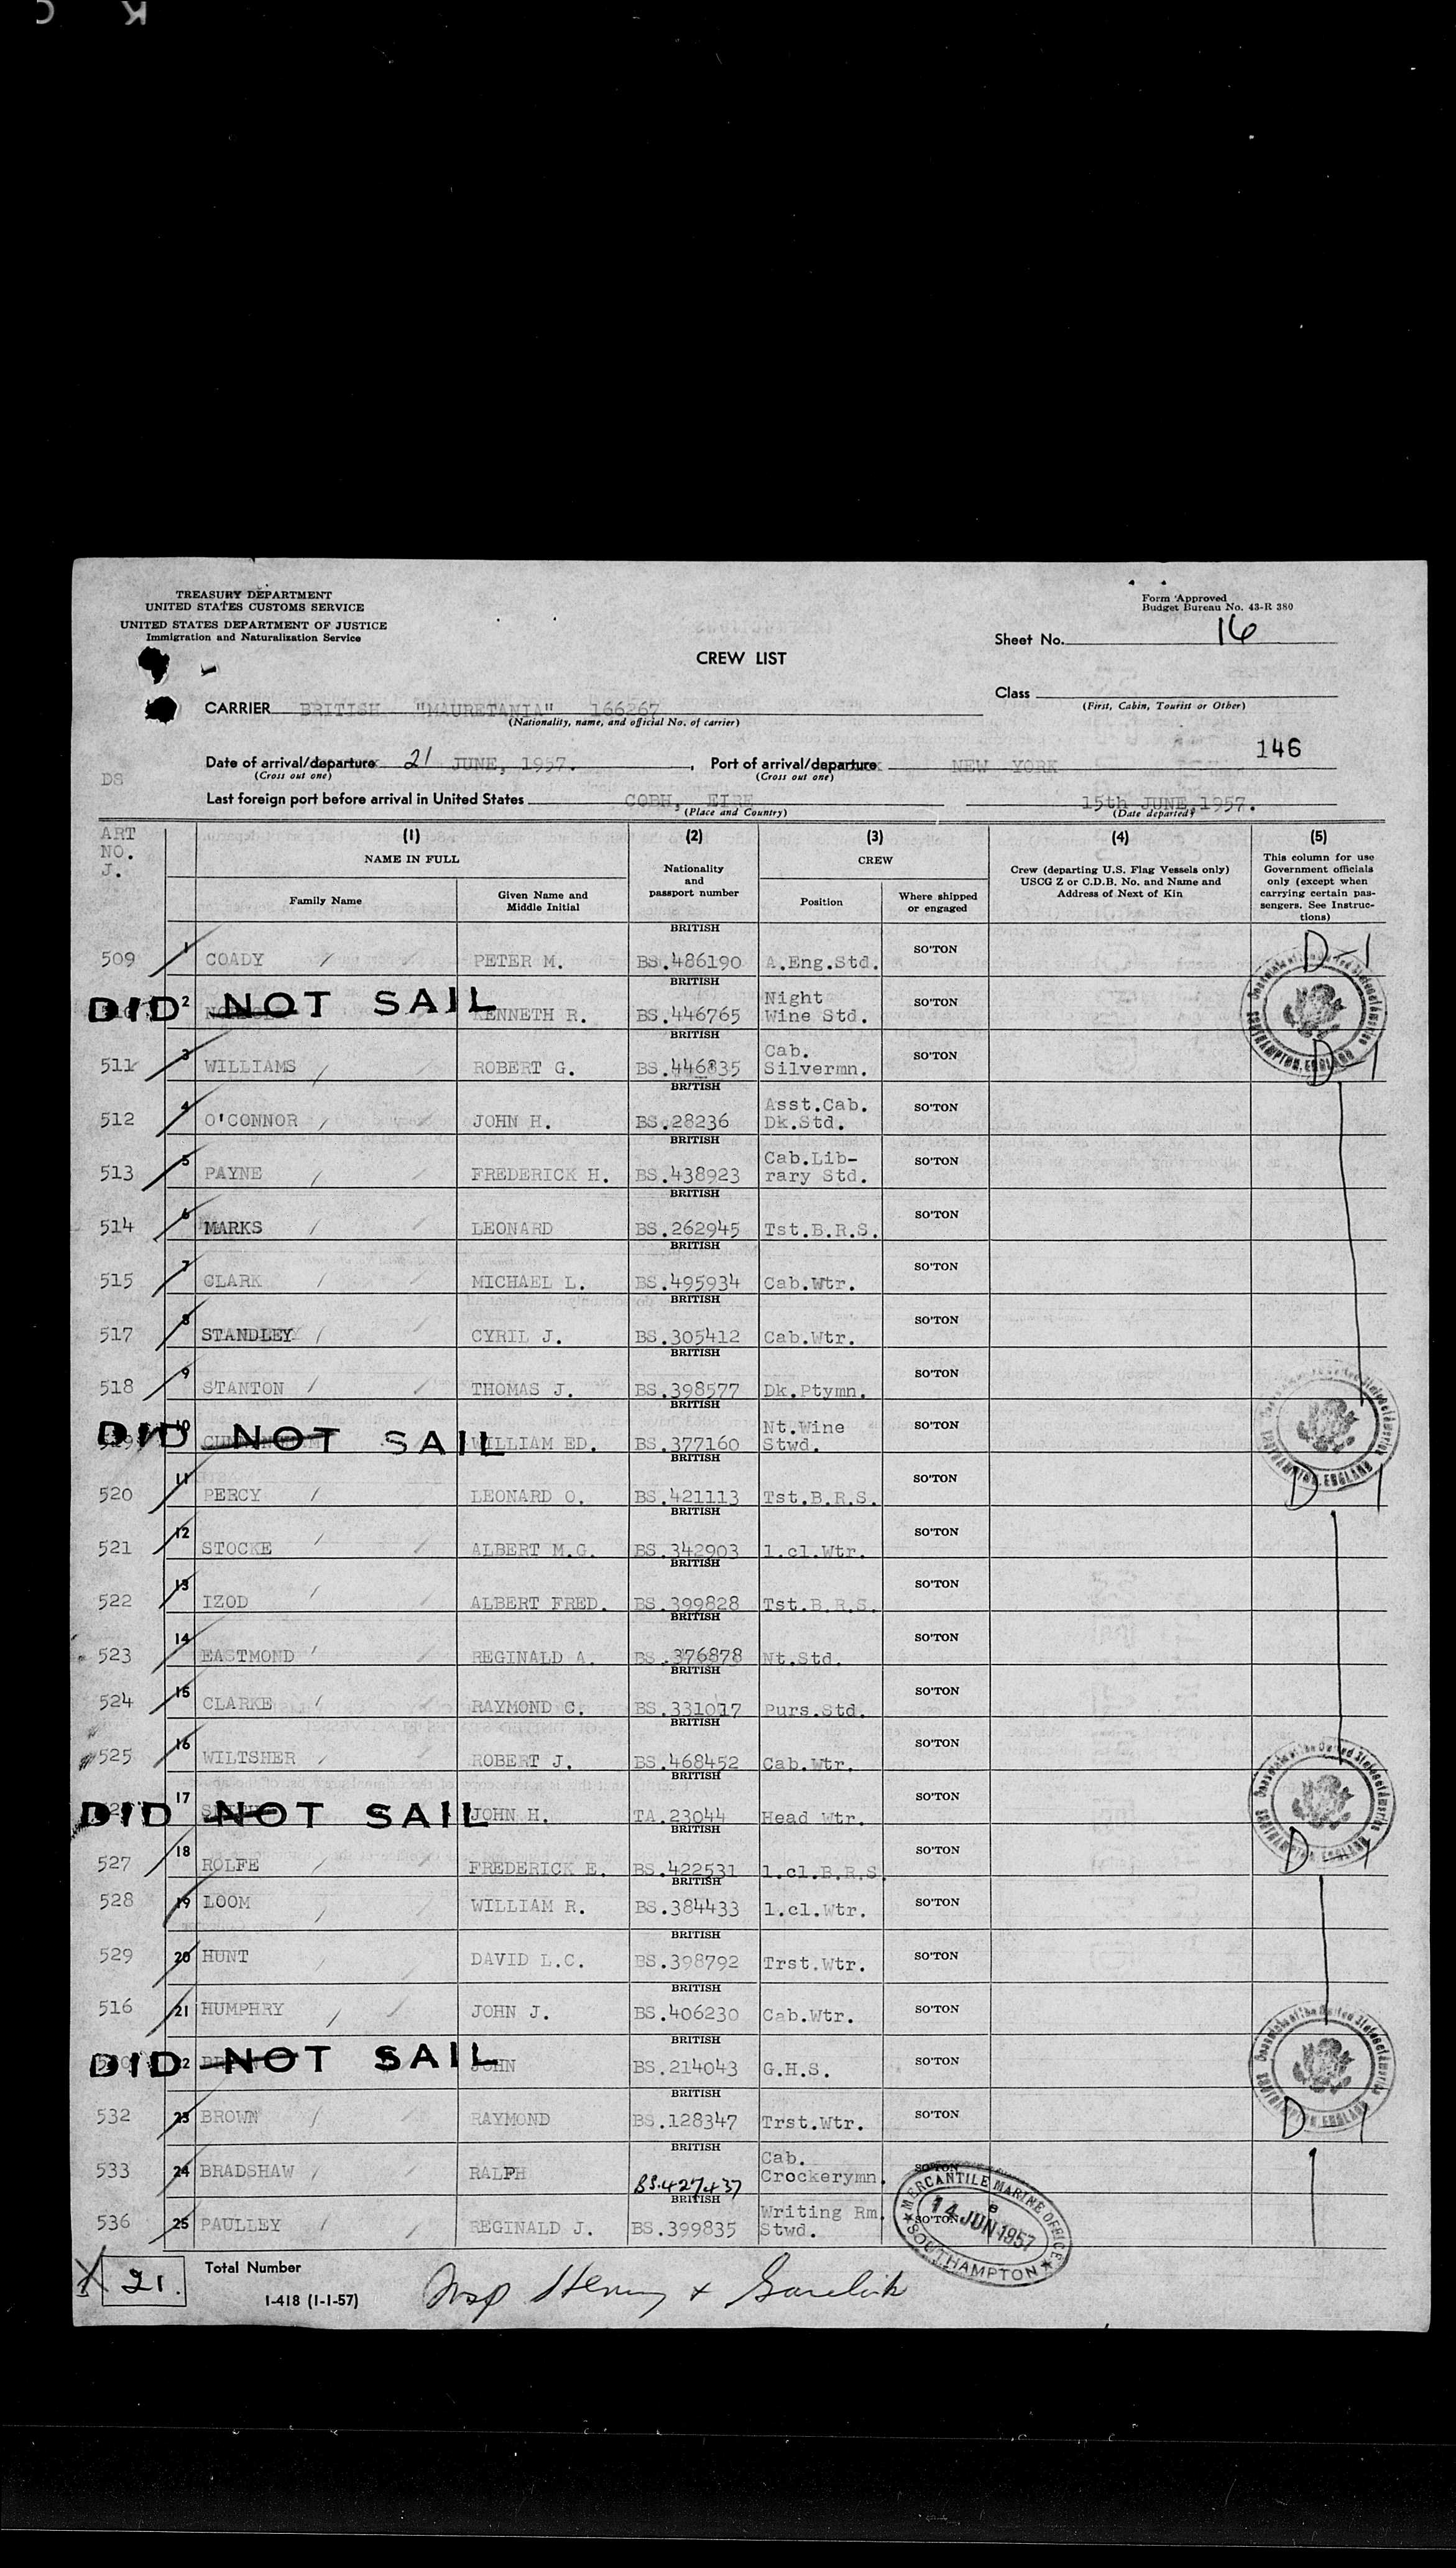 TREASURY DEPARTMENT
UNITED STATES CUSTOMS SERVICE
UNITED STATES DEPARTMENT OF JUSTICE
Immigration and Naturalization Service
Form Approved
Budget Bureau No. 43-R 380
Sheet No. 16
CREW LIST
Class
(First, Cabin, Tourist or Other)
CARRIER BRITISH "MAURETANIA" 166267
(Nationality, name, and official No. of carrier)
146
Date of arrival/departure 21 JUNE, 1957. , Port of arrival/departure NEW YORK
(Cross out one) (Cross out one)
DS
Last foreign port before arrival in United States COBH, EIRE 15th JUNE,1957.
(Place and Country) (Date departed)
ART NO. J.
(1) (2) (3) (4) (5)
NAME IN FULL
Family Name
Given Name and Middle Initial
Nationality and passport number
CREW
Position
Where shipped or engaged
Crew (departing U.S. Flag Vessels only) USCG Z or C.D.B. No. and Name and Address of Next of Kin
This column for use Government officials only (except when carrying certain passengers. See Instructions)
509 1 COADY PETER M. BRITISH BS.486190 A.Eng.Std. SO'TON D-1
DID 2 NOT SAIL KENNETH R. BRITISH BS.446765 Night Wine Std. SO'TON
511 3 WILLIAMS ROBERT G. BRITISH BS.446835 Cab. Silvermn. SO'TON D 1
512 4 O'CONNOR JOHN H. BRITISH BS.28236 Asst.Cab. Dk.Std. SO'TON
513 5 PAYNE FREDERICK H. BRITISH BS.438923 Cab.Lib-rary Std. SO'TON
514 6 MARKS LEONARD BRITISH BS.262945 Tst.B.R.S. SO'TON
515 7 CLARK MICHAEL L. BRITISH BS.495934 Cab.Wtr. SO'TON
517 8 STANDLEY CYRIL J. BRITISH BS.305412 Cab.Wtr. SO'TON
518 9 STANTON THOMAS J. BRITISH BS.398577 Dk.Ptymn. SO'TON
DID 10 NOT SAIL WILLIAM ED. BRITISH BS.377160 Nt.Wine Stwd. SO'TON
520 11 PERCY LEONARD O. BRITISH BS.421113 Tst.B.R.S. SO'TON D 1
521 12 STOCKE ALBERT M.G. BRITISH BS.342903 1.cl.Wtr. SO'TON
522 13 IZOD ALBERT FRED. BRITISH BS.399828 Tst.B.R.S. SO'TON
523 14 EASTMOND REGINALD A. BRITISH BS.376878 Nt.Std. SO'TON
524 15 CLARKE RAYMOND C. BRITISH BS.331017 Purs.Std. SO'TON
525 16 WILTSHER ROBERT J. BRITISH BS.468452 Cab.Wtr. SO'TON
DID 17 NOT SAIL JOHN H. BRITISH TA.23044 Head Wtr. SO'TON
527 18 ROLFE FREDERICK E. BRITISH BS.422531 1.cl.B.R.S SO'TON D 1
528 19 LOOM WILLIAM R. BRITISH BS.384433 1.cl.Wtr. SO'TON
529 20 HUNT DAVID L.C. BRITISH BS.398792 Trst.Wtr. SO'TON
516 21 HUMPHRY JOHN J. BRITISH BS.406230 Cab.Wtr. SO'TON
DID 22 NOT SAIL JOHN BRITISH BS.214043 G.H.S. SO'TON
532 23 BROWN RAYMOND BRITISH BS.128347 Trst.Wtr. SO'TON D 1
533 24 BRADSHAW RALPH BRITISH BS.427437 Cab. Crockerymn. SO'TON
536 25 PAULLEY REGINALD J. BRITISH BS.399835 Writing Rm. Stwd. SO'TON
MERCANTILE MARINE OFFICE
14 JUN 1957
SOUTHAMPTON
21. Total Number
I-418 (1-1-57)